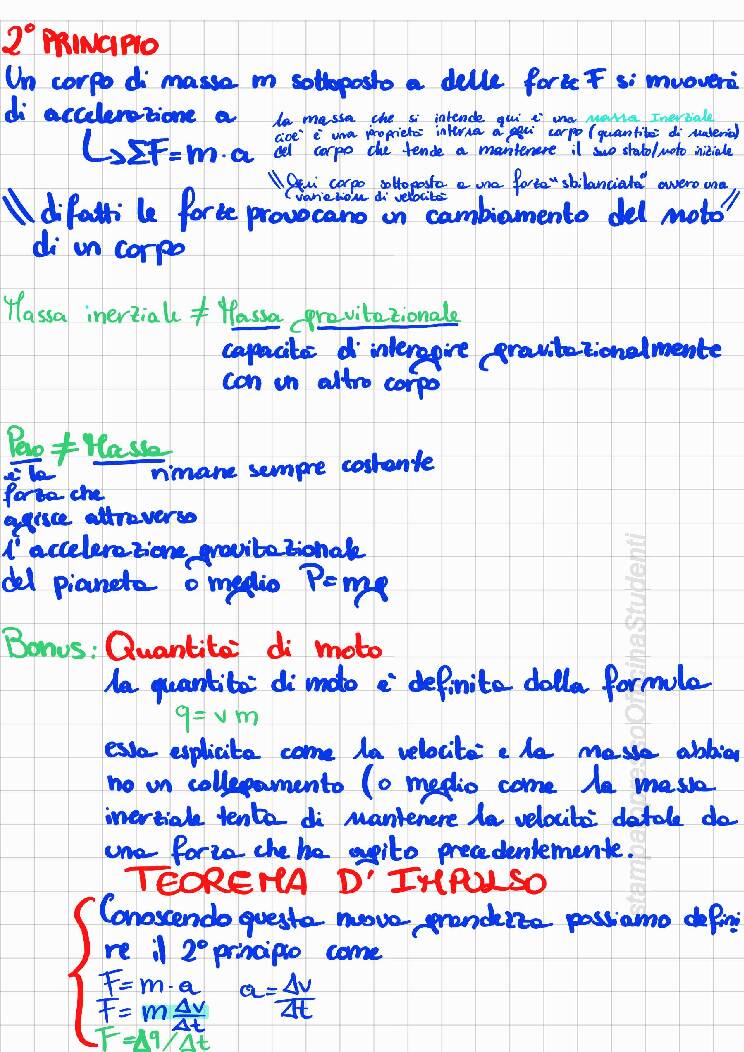 2° PRINCIPIO
Un corpo di massa m sottoposto a delle forze F si muoverà
di accelerazione a
↳ ΣF = m · a
la massa che si intende qui è una massa Inerziale
cioè è una proprietà interna a ogni corpo (quantità di materia)
del corpo che tende a mantenere il suo stato/moto iniziale
\\ Ogni corpo sottoposto a una forza "sbilanciata" ovvero una
variazione di velocità //
\\ difatti le forze provocano un cambiamento del moto
di un corpo
Massa inerziale ≠ Massa gravitazionale
capacità di interagire gravitazionalmente
con un altro corpo
Peso ≠ Massa
è la rimane sempre costante
forza che
agisce attraverso
l'accelerazione gravitazionale
del pianeta o meglio P = mg
Bonus: Quantità di moto
la quantità di moto è definita dalla formula
q = v m
essa esplicita come la velocità e la massa abbia
no un collegamento (o meglio come la massa
inerziale tenta di mantenere la velocità datale da
una forza che ha agito precedentemente.
TEOREMA D'IMPULSO
Conoscendo questa nuova grandezza possiamo defini
re il 2° principio come
F = m · a a = Δv/Δt
F = m Δv/Δt
F = Δq/Δt
stampatopressoOfficinaStudenti